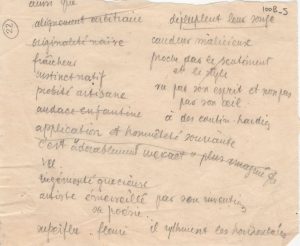 ainsi que
100B-S
22
alignement arbitraire dépeuplent leur songe
originalité naïve candeur malicieuse
fraîcheur proche dans le sentiment
et le style
instinct natif
probité artisane vu par son esprit et non pas
par son œil
audace enfantine à des contin hardies
application et honnêteté souriante
c'est "adorablement inexact" plus imaginé que
vu
ingénuité gracieuse
artiste émerveillé par son invention
sa poésie
fleuri il rythment les horizontales